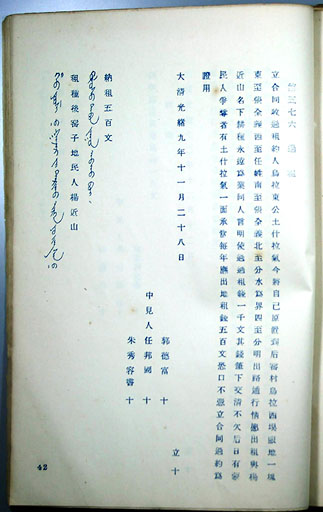 三七六 過
立合同收過租約人烏拉東公土什拉氣今將自己原置到后窰村烏拉西塲地一塊
東至張全義西至任南至張全義北至分水爲界四至分明出路通行情愿出租與楊
近山名下種永遠爲業同人言明使過過租錢一千文其錢筆下交清不欠后日有蒙
民人爭奪者有土什拉氣一面承當每年應出地租錢五百文恐口不憑立合同過約爲
證用
大清光緒九年十一月二十八日
立十
郭德富 十
中見人任邦國 十
朱秀容書 十
納租五百文
租種後窰子地民人楊近山
42